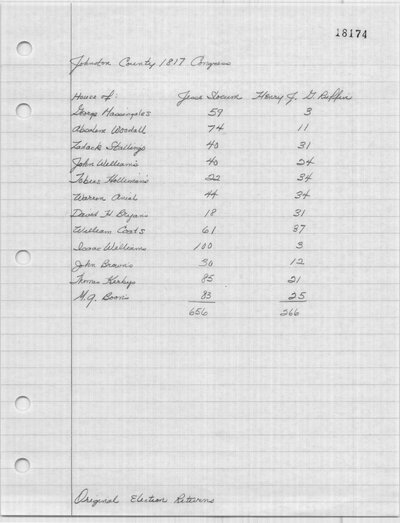 18174
Johnston County 1817 Congress
House of: Jesse Slocum Henry J. G. Ruffin
George 59 3
Woodall 74 11
Zadack Stallings 40 31
John William's 40 24
Tobias Holliman's 22 34
Warren 44 34
David H Bryans 18 31
William Coats 61 37
Isaac Williams 100 3
John Brown's 30 12
Thomas 85 21
Boon's 83 25
656 266
Original Election Returns